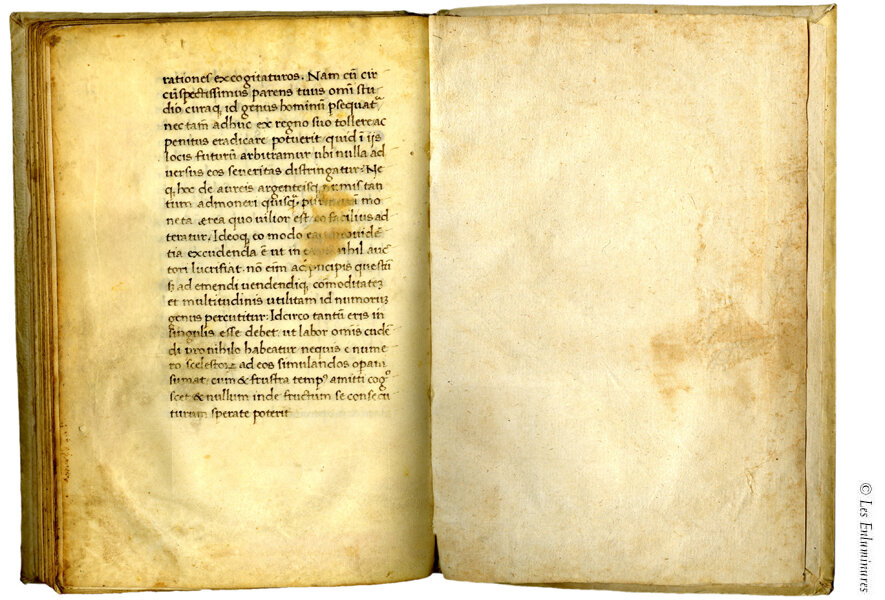 rationes excogitaturos. Nam cū cir
cūspectissimus parens tuus omī stu
dio curaq, id genus hominū psequat
nec tam adhuc ex regno suo tollere ac
penitus eradicare potuerit quid ī iis
locis futurū arbitramur ubi nulla ad
uersus eos seueritas distringatur: Ne
q, hoc de aureis argenteisq tan
tum admoneri quisq, mo
neta, erea quo uilior est eo facilius ad
teratur. Ideoq, eo modo
tia excudenda ē ut in nihil auc
tori lucrifiat. nō eim ad pncipis questū
ad emendi uendendiq, cōmoditatez
et multitudinis utilitam id numoruz
genus percutitur: Idcirco tantū eris in
singulis esse debet ut labor omīs cudē
di pro nihilo habeatur nequis e nume
ro scelestorz ad eos simulandos opam
sumat. cum & frustra temp⁹ amitti cog⁹
scet & nullum inde fructum se consecu
turum sperare poterit
© Les Enluminures